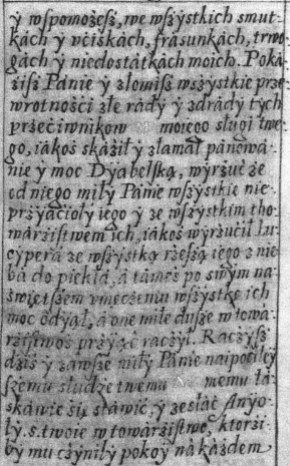 ÿ wspomożesz, we wszystkich smut-
kách ÿ vćiskách, frásunkách, trwo
gách ÿ niedostátkách moich. Poka
żisz Pánie ÿ złomisz wszystkie prze
wrotnośći złe rády ÿ zdrády tych
przećiwnikow moiego sługi twe
go, iákoś skáźił ÿ złamał pánowá-
nie ÿ moc Dyabelską, wyrzuć że
od niego miły Pánie wszystkie nie
przyiaćioły iego ÿ ze wszystkim tho
wárzistwem ich, iákoś wyrzućił lu
cyperá ze wszystką rzeszą iego z nie
bá do piekłá, á támeś po swym na
świętszem vmęczeniu wszystkę ich
moc odyął, á one miłe dusze w towa
rzistwoś przyiąć raczył. Raczysz
dziś ÿ záwsze miły Pánie
szemu słudze twemu memu łá-
skáwie się stáwić, ÿ zesłáć Anyo-
ły .s. twoie w towárzistwo, ktorzi
by mu czynily pokoy ná káżdem